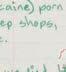 caine) porn
ep shops,